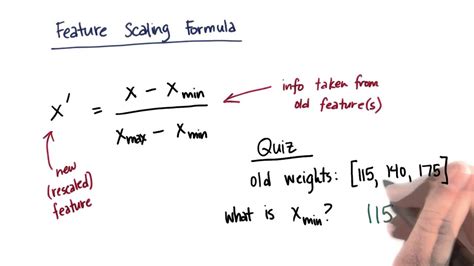 Feature Scaling Formula
x' = (x - x_min) / (x_max - x_min)
info taken from
old feature(s)
new
(rescaled)
feature
Quiz
old weights: [115, 140, 175]
what is x_min? 115